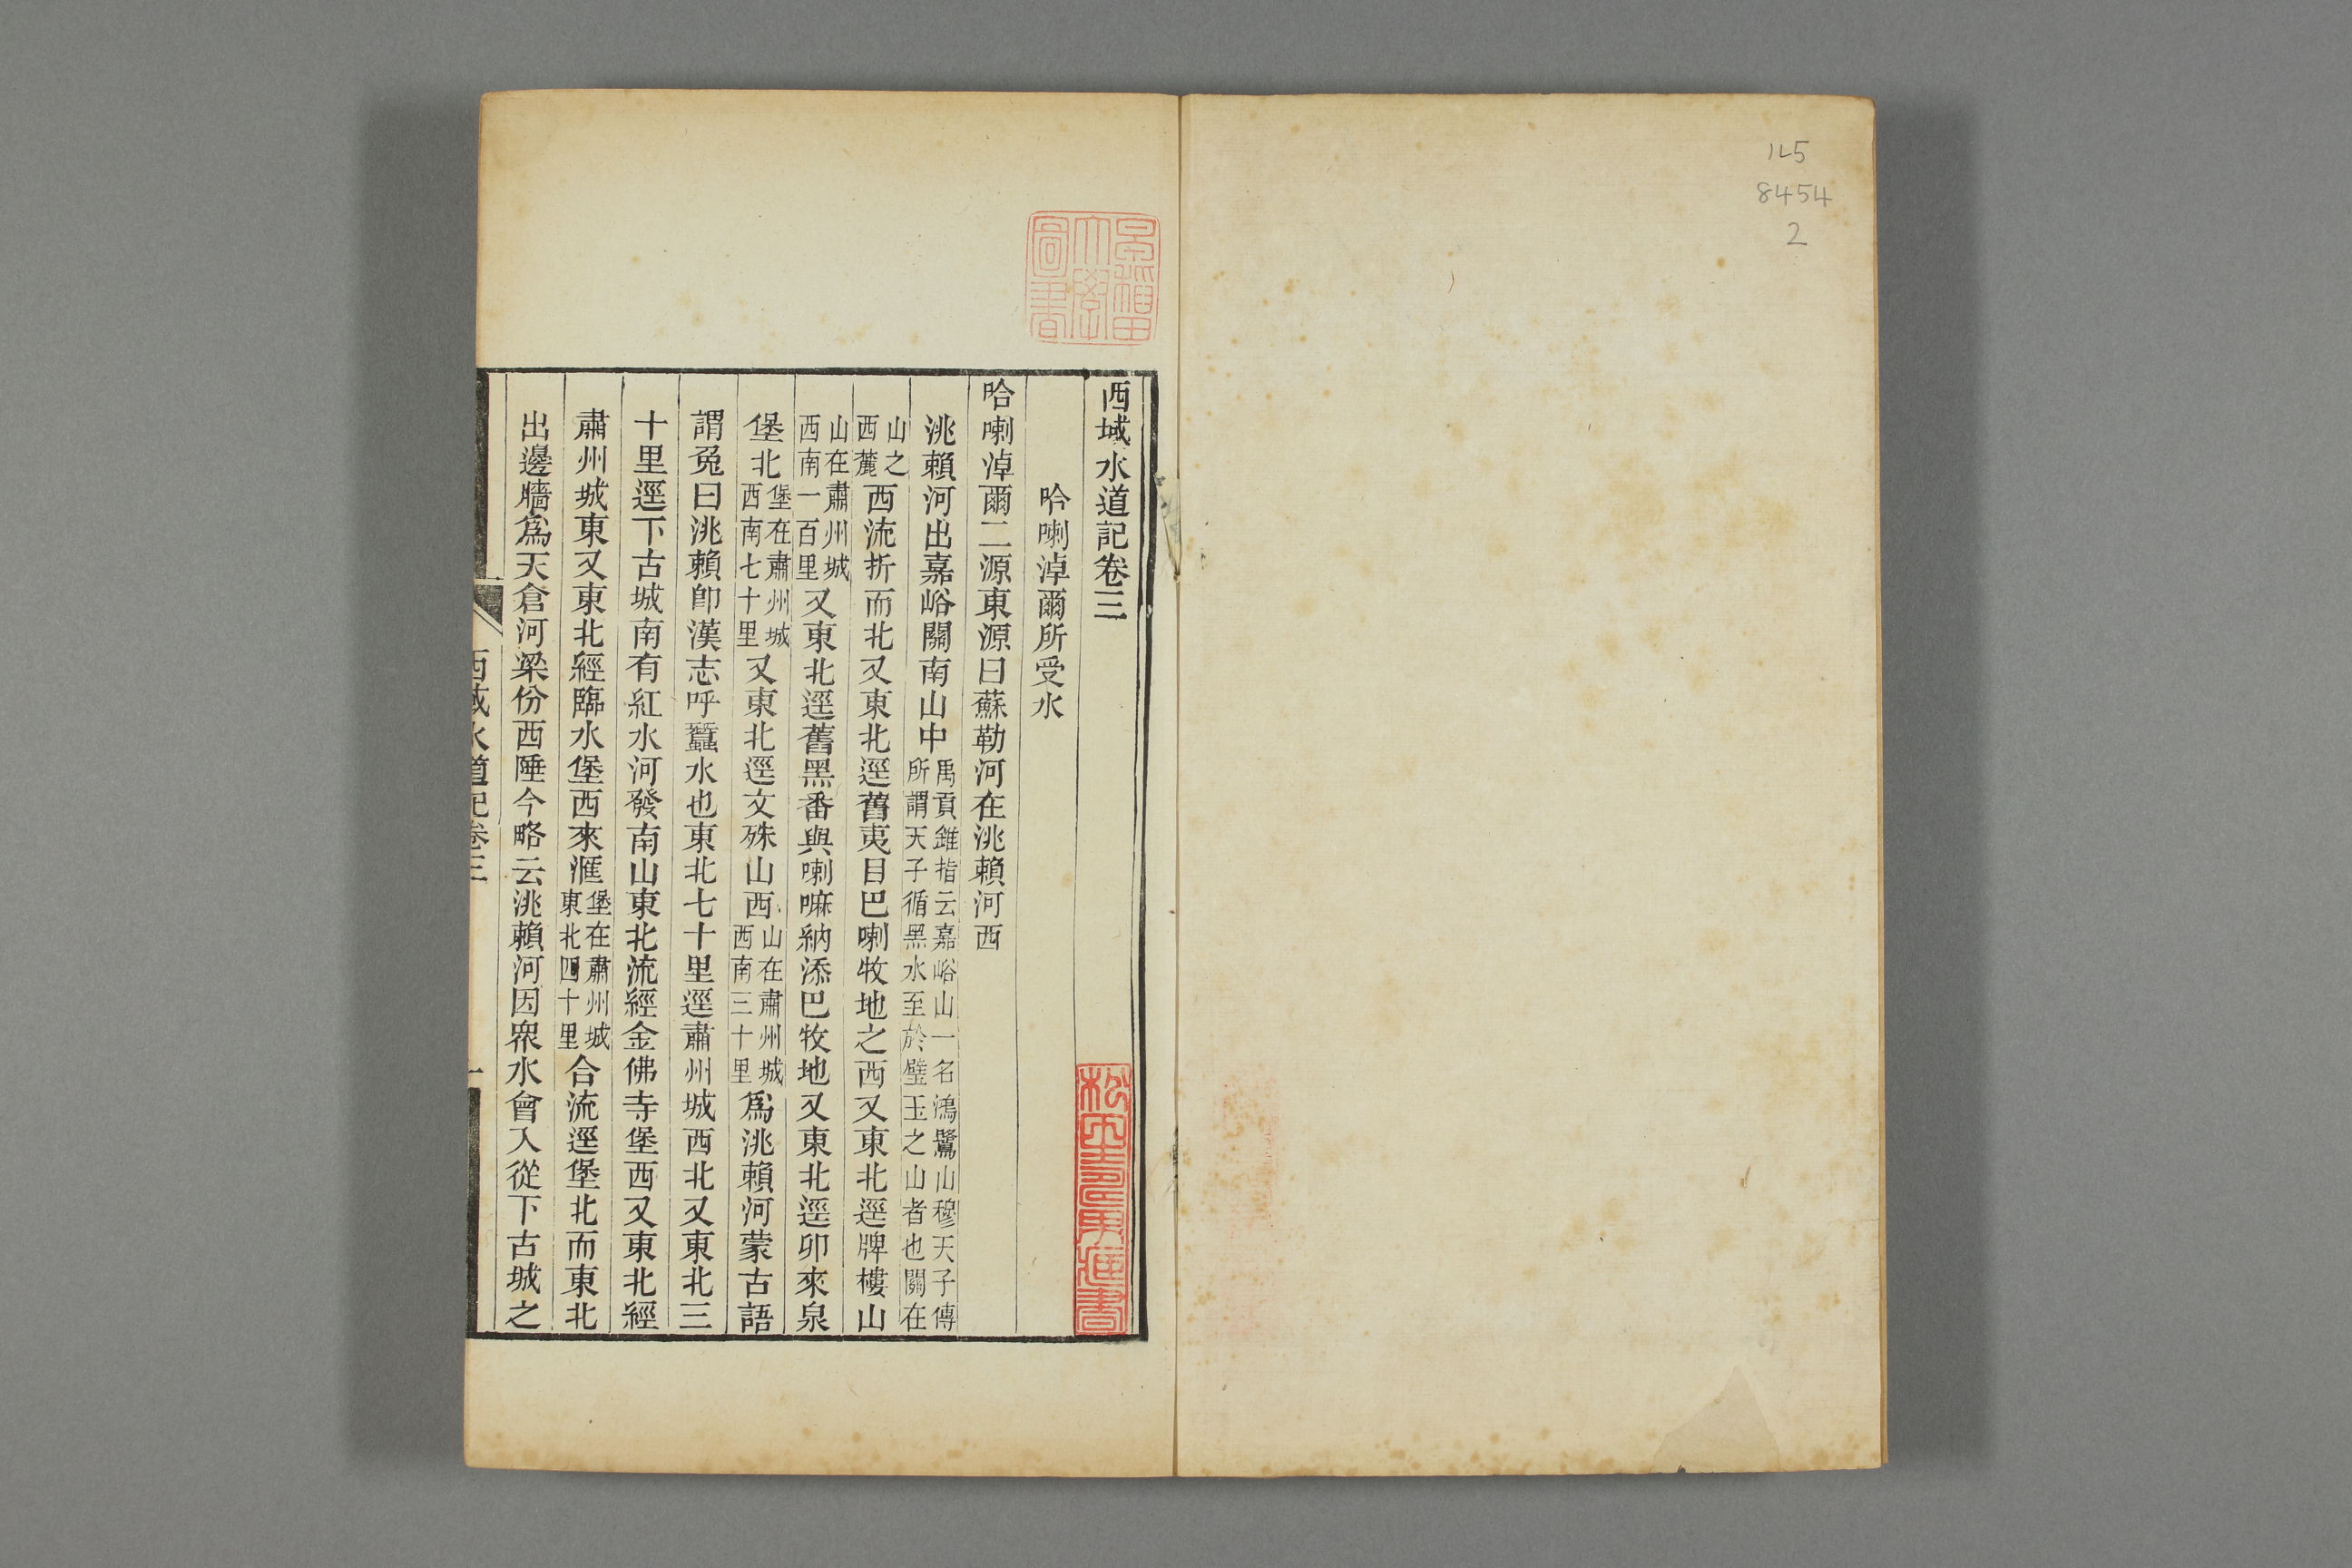 ル5
8454
2
早稲田大學圖書
西域水道記卷三
哈喇淖爾所受水
哈喇淖爾二源東源曰蘇勒河在洮賴河西
洮賴河出嘉峪關南山中禹貢錐指云嘉峪山一名鴻鷺山穆天子傳所謂天子循黑水至於璧玉之山者也關在
山之西麓西流折而北又東北逕舊夷目巴喇牧地之西又東北逕牌樓山
山在肅州城西南一百里又東北逕舊黑番與喇嘛納添巴牧地又東北逕卯來泉
堡北堡在肅州城西南七十里又東北逕文殊山西山在肅州城西南三十里爲洮賴河蒙古語
謂兔曰洮賴卽漢志呼蠶水也東北七十里逕肅州城西北又東北三
十里逕下古城南有紅水河發南山東北流經金佛寺堡西又東北經
肅州城東又東北經臨水堡西來滙堡在肅州城東北四十里合流逕堡北而東北
出邊牆爲天倉河梁份西陲今略云洮賴河因衆水會入從下古城之
西域水道記卷三
一